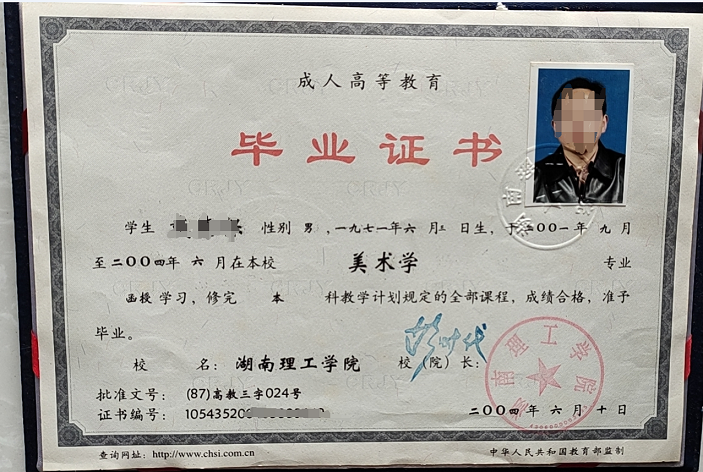 成人高等教育
毕业证书
学生 性别 男 ,一九七一年六 月 日生，于二〇〇一年 九 月
至二〇〇四年 六 月在本校 美术学 专业
函授 学习，修完 本 科教学计划规定的全部课程，成绩合格，准予
毕业。
校 名： 湖南理工学院 校（院）长：
批准文号： (87)高教三字024号
证书编号： 10543520
二〇〇四年 六 月 十 日
湖南理工学院
查询网址：http://www.chsi.com.cn 中华人民共和国教育部监制